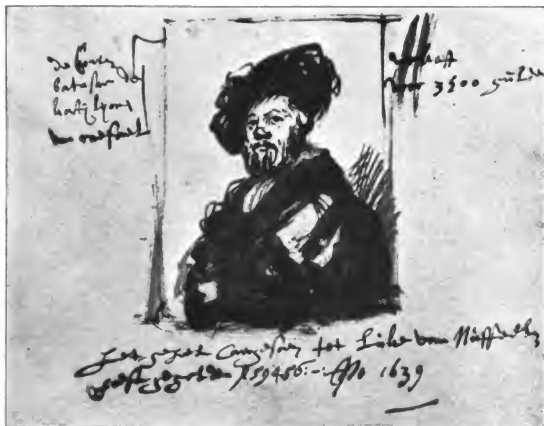 de Conte
batasar de
kastijlijone
van rafael
verkoft
voor 3500 gulden
het geheel tot Luke van Nuffeelen
heeft gegolden f 59456:- Ao 1639